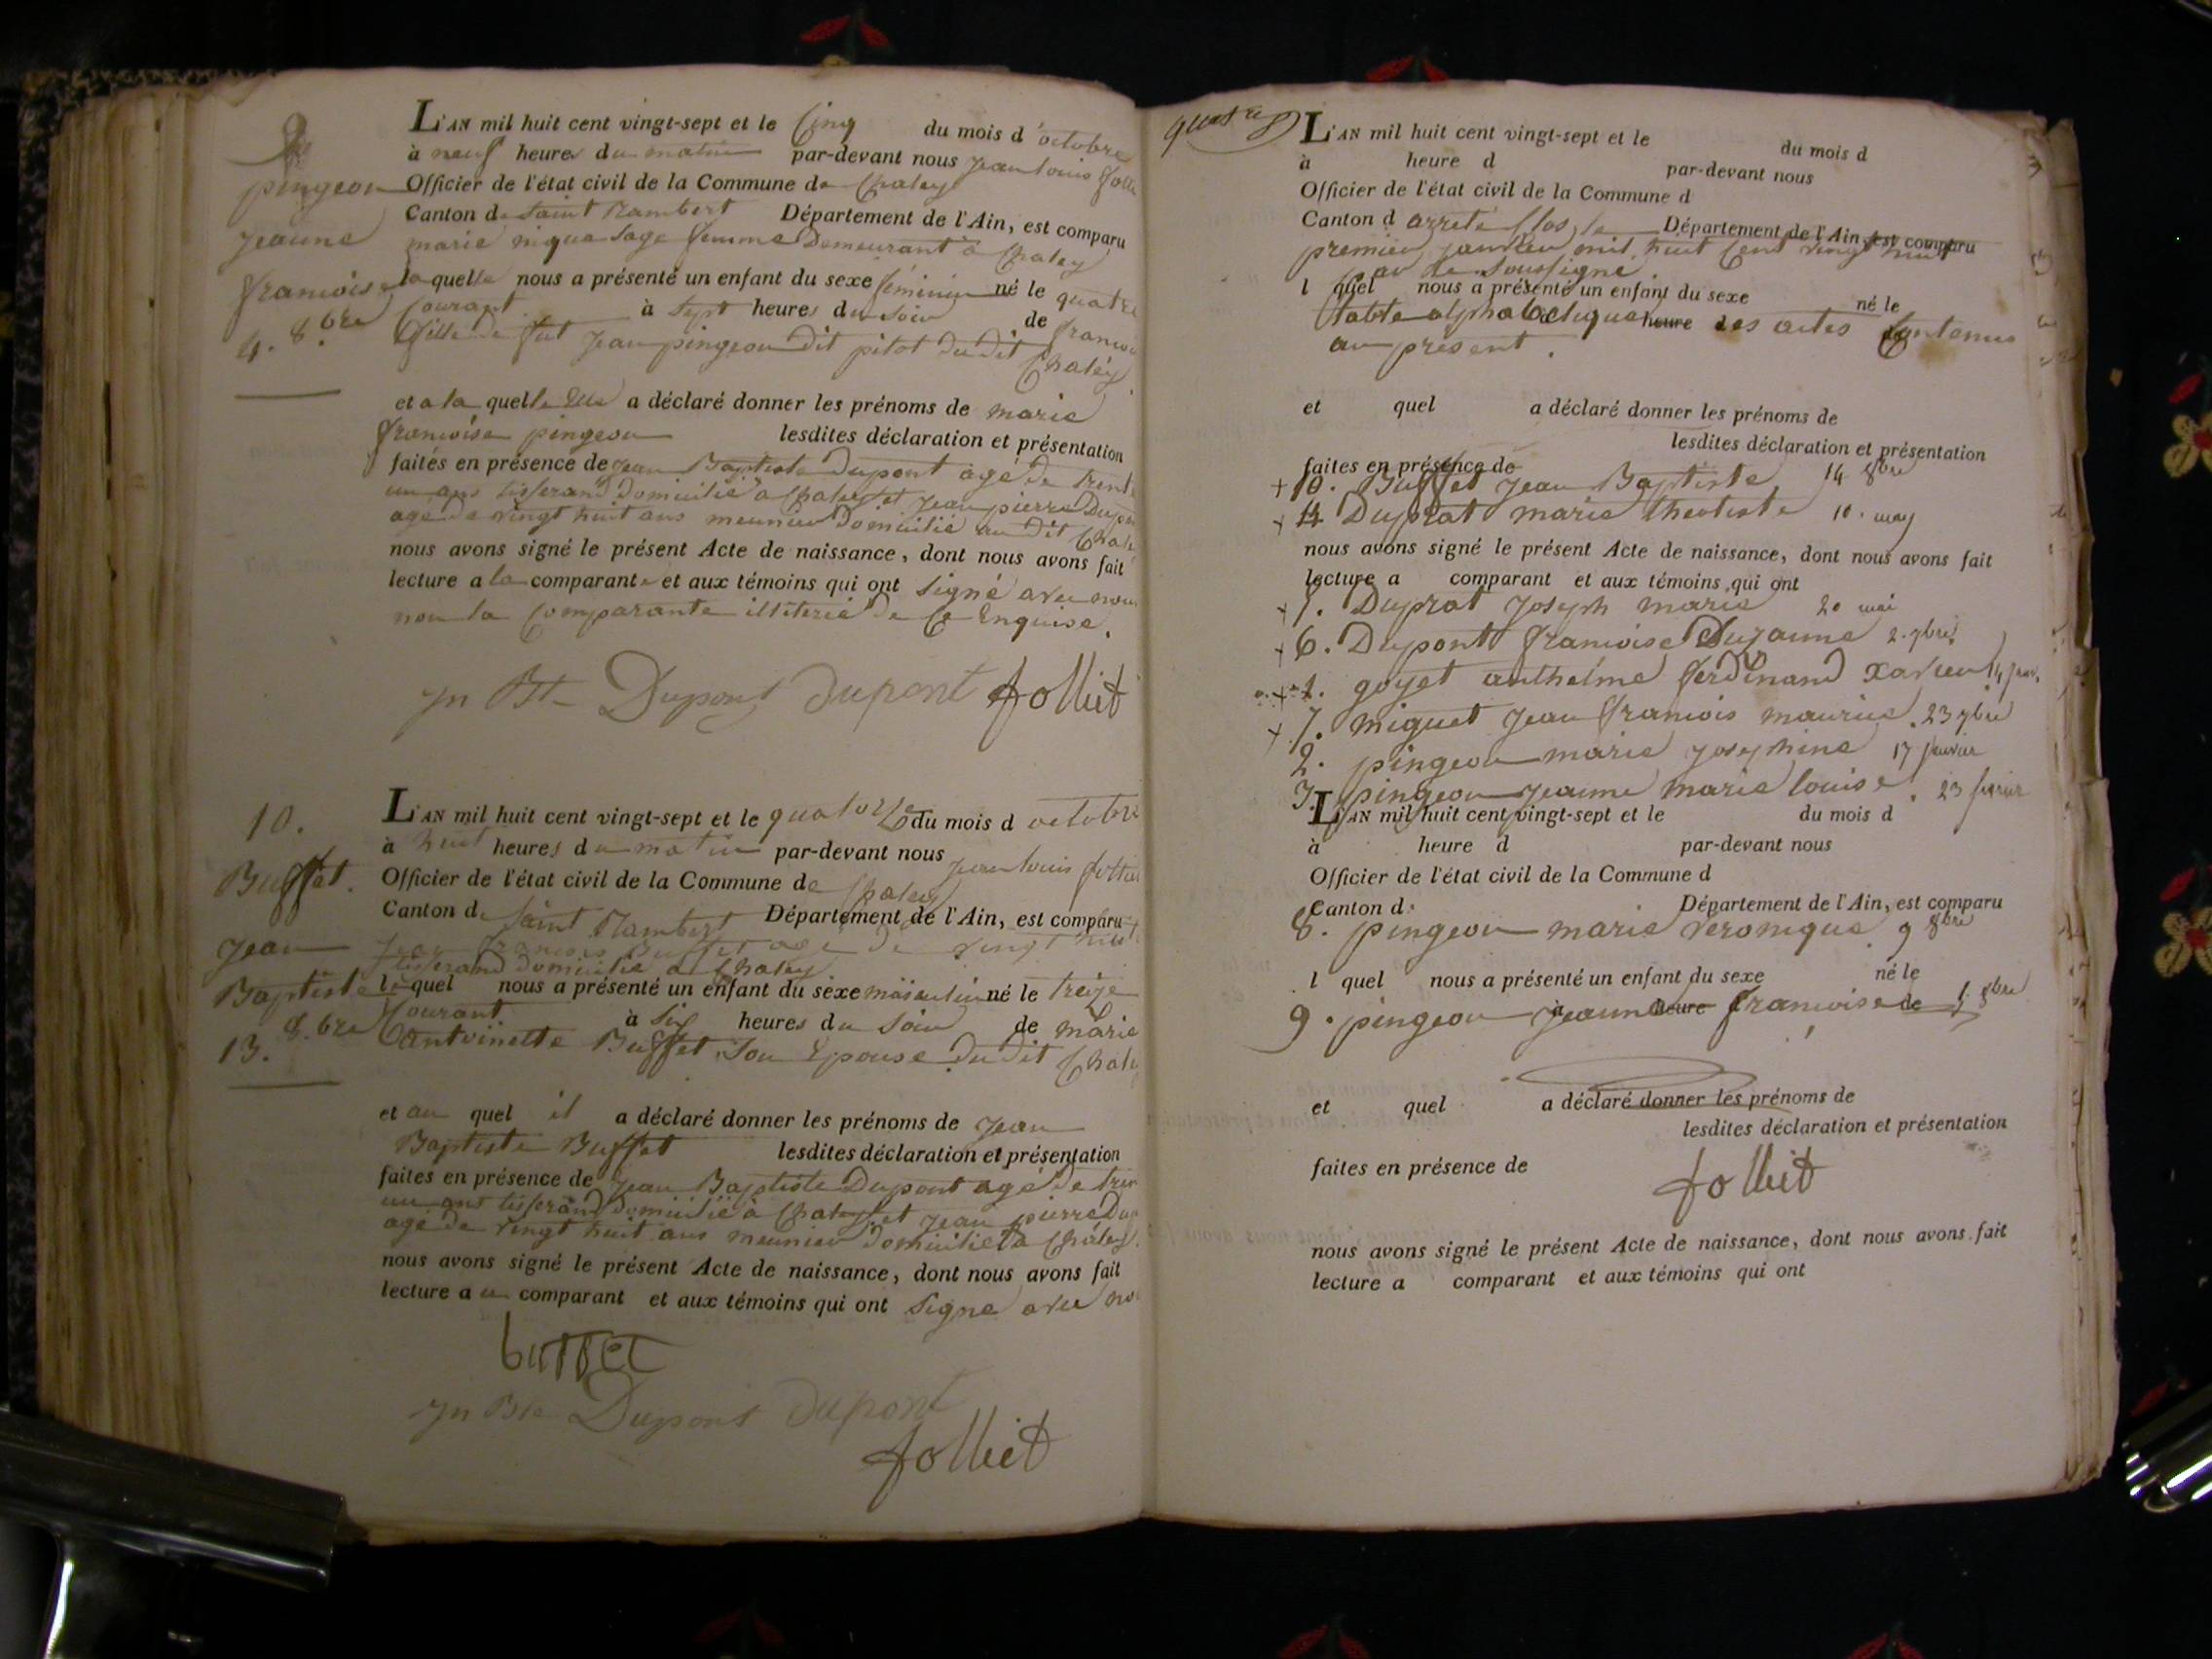 9
pingeon
jeanne
francoise
4. 8.bre
L'AN mil huit cent vingt-sept et le Cinq du mois d'octobre
à neuf heures du matin par-devant nous jean louis folli
Officier de l'état civil de la Commune de Chaley
Canton de Saint Rambert Département de l'Ain, est comparu
marie sage femme Demeurant à Chaley
laquelle nous a présenté un enfant du sexe féminin né le quatre
Courant à Sept heures du Soir de francoi
fille de fut jean pingeon dit pitot du dit Chaley
et a la quelle Elle a déclaré donner les prénoms de marie
francoise pingeon lesdites déclaration et présentation
faites en présence de jean Baptiste Dupont agé de trente
un ans tisserand Domicilié à Chaley et jean pierre Dupon
agé de vingt huit ans meunier Domicilié au dit Chale
nous avons signé le présent Acte de naissance, dont nous avons fait
lecture a la comparante et aux témoins qui ont Signé avec nous
non la Comparante de Ce Enquise.
jn Bte Dupont dupont folliet
10.
Buffet.
jean
Baptiste
8.bre
13.
L'AN mil huit cent vingt-sept et le quatorze du mois d octobre
à huit heures du matin par-devant nous jean louis folliet
Officier de l'état civil de la Commune de Chaley
Canton de Saint Rambert Département de l'Ain, est comparu
jean francois Buffet agé de vingt huit
tisserand domicilié à Chaley
lequel nous a présenté un enfant du sexe masculin né le treize
Courant à Six heures du Soir de marie
antoinette Buffet Son Epouse du dit Chaley
et au quel il a déclaré donner les prénoms de jean
Baptiste Buffet lesdites déclaration et présentation
faites en présence de jean Baptiste Dupont agé de tren
un ans tisserand domicilié à Chaley et jean pierre Dup
agé de vingt huit ans meunier Domicilié à Chaley.
nous avons signé le présent Acte de naissance, dont nous avons fait
lecture au comparant et aux témoins qui ont Signé avec no
buffet
jn Bte Dupont dupont
folliet
quatre
L'AN mil huit cent vingt-sept et le du mois d
à heure d par-devant nous
Officier de l'état civil de la Commune d
Canton d arreté Clos le Département de l'Ain, est comparu
premier janvier mil huit Cent vingt huit
par le Soussigné
l quel nous a présenté un enfant du sexe né le
table alphabetique heure des actes Contenus
au present.
et quel a déclaré donner les prénoms de
lesdites déclaration et présentation
faites en présence de
+ 10. Buffet jean Baptiste 14 8bre
+ 4 Duprat marie theotiste 10. may
nous avons signé le présent Acte de naissance, dont nous avons fait
lecture a comparant et aux témoins qui ont
+ 5. Duprat joseph marie 20 mai
+ 6. Dupont francoise Suzanne 2. 7bre
+ 1. goyet anthelme ferdinand xavier 14 janv.
+ 7. miguet jean francois maurice. 23 7bre
2. pingeon marie josephine 17 janvier
3. pingeon jeanne marie louise. 23 fevrier
L'AN mil huit cent vingt-sept et le du mois d
à heure d par-devant nous
Officier de l'état civil de la Commune d
Canton d Département de l'Ain, est comparu
8. pingeon marie veronique. 9 8bre
l quel nous a présenté un enfant du sexe né le
9. pingeon jeanne à heure francoise de 8bre
et quel a déclaré donner les prénoms de
lesdites déclaration et présentation
faites en présence de
folliet
nous avons signé le présent Acte de naissance, dont nous avons fait
lecture a comparant et aux témoins qui ont